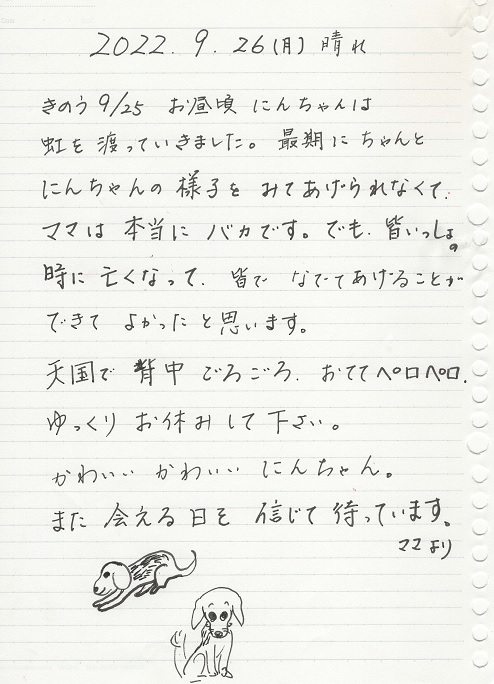 2022.9.26(月) 晴れ
きのう 9/25 お昼頃 にんちゃんは
虹を 渡っていきました。最期に ちゃんと
にんちゃんの 様子を みてあげられなくて、
ママは 本当に バカです。でも、皆いっしょの
時に 亡くなって、皆で なでてあげることが
できて よかったと思います。
天国で 背中 ごろごろ、おててペロペロ、
ゆっくり お休みして 下さい。
かわいい かわいい にんちゃん。
また 会える 日を 信じて 待っています。
ママより